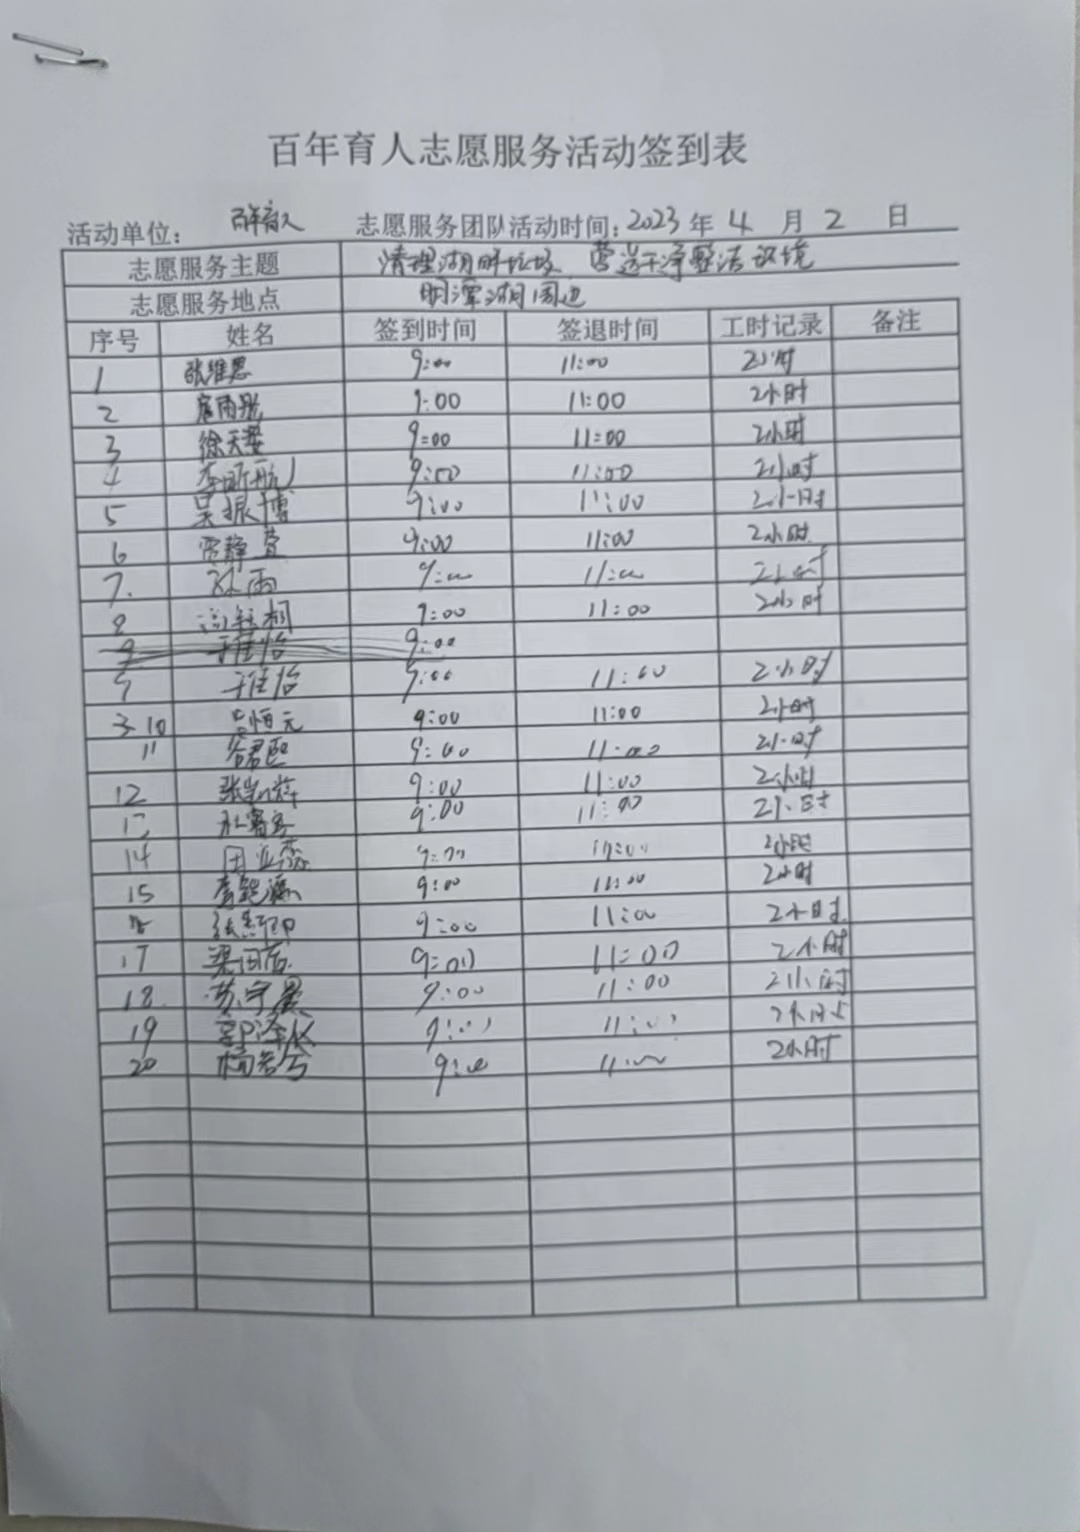 百年育人志愿服务活动签到表
活动单位: 百年育人 志愿服务团队活动时间: 2023 年 4 月 2 日
志愿服务主题 清理湖畔垃圾 营造干净整洁环境
志愿服务地点 明潭湖周边
序号 姓名 签到时间 签退时间 工时记录 备注
1 张维恩 9:00 11:00 2小时
2 9:00 11:00 2小时
3 徐天 9:00 11:00 2小时
4 李昕航 9:00 11:00 2小时
5 吴振博 9:00 11:00 2小时
6 贾静萱 9:00 11:00 2小时
7. 雨 9:00 11:00 2小时
8 9:00 11:00 2小时
9 于佳怡 9:00
9 于佳怡 9:00 11:00 2小时
10 吴恒元 9:00 11:00 2小时
11 谷君熙 9:00 11:00 2小时
12 张 9:00 11:00 2小时
13 9:00 11:00 2小时
14 9:00 11:00 2小时
15 9:00 11:00 2小时
9:00 11:00 2小时
17 梁 9:00 11:00 2小时
18. 苏宇晨 9:00 11:00 2小时
19 郭泽 9:00 11:00 2小时
20 杨 9:00 11:00 2小时